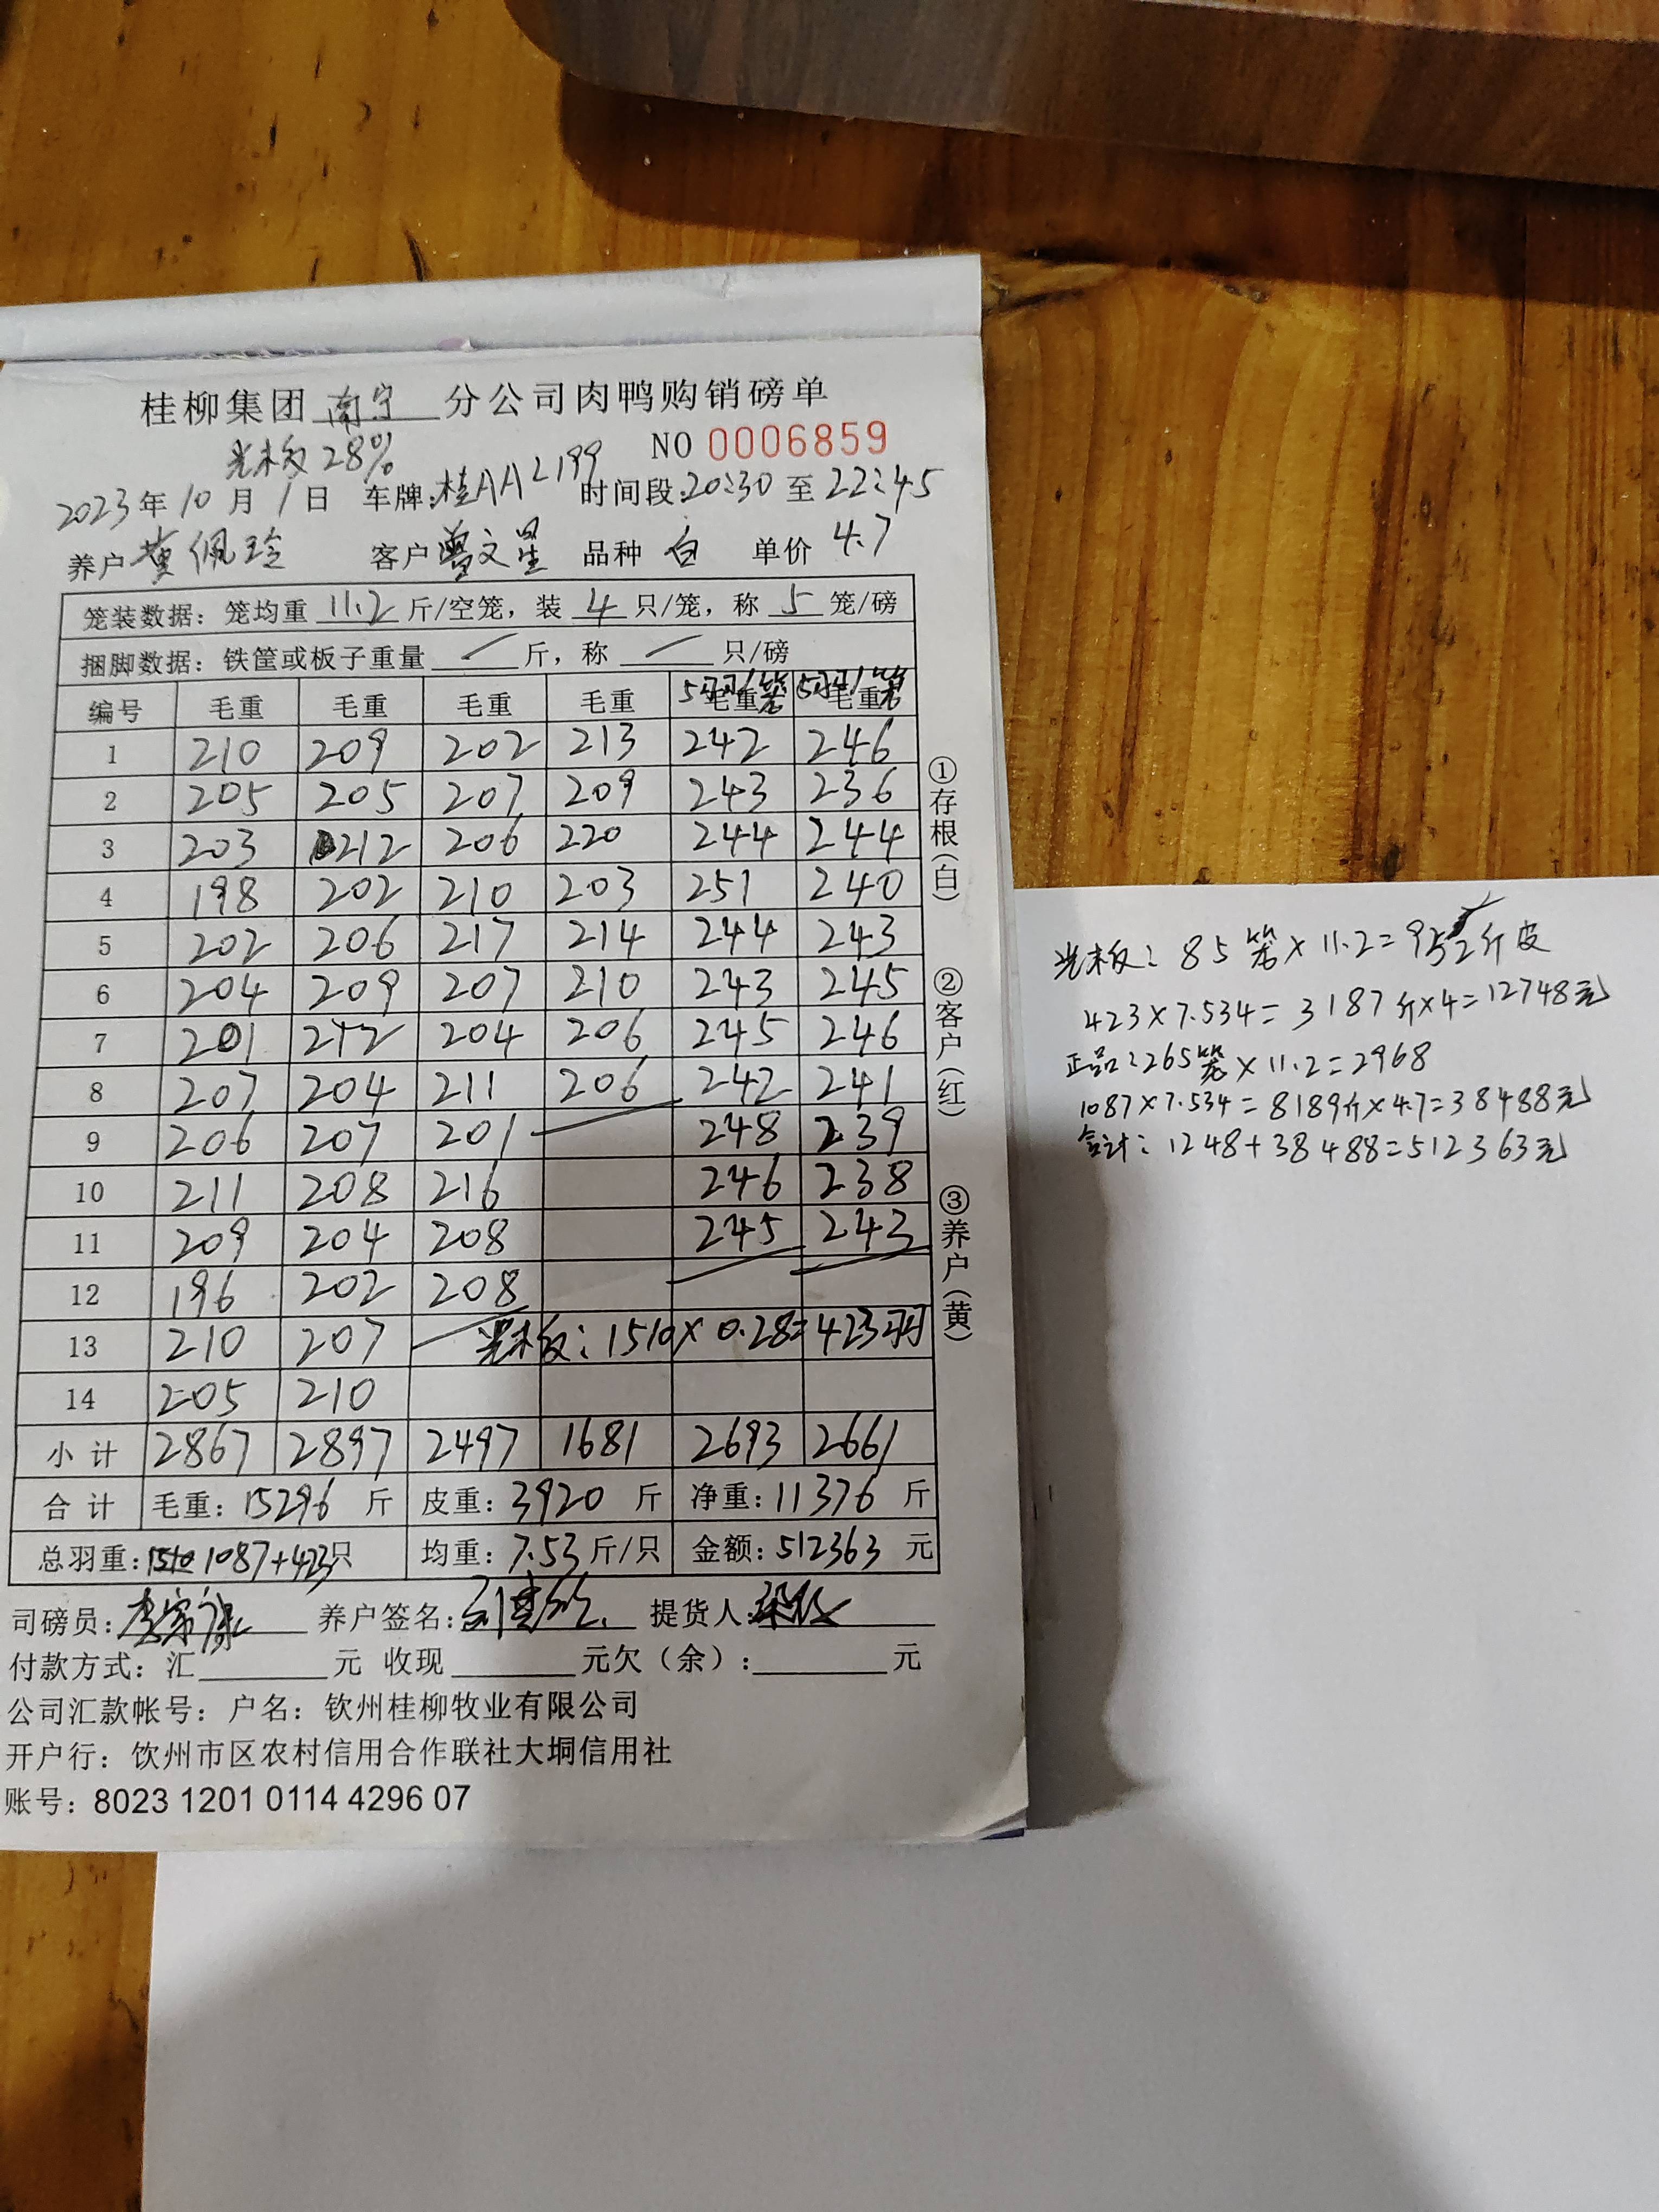 桂柳集团 南宁 分公司肉鸭购销磅单
光板28% NO 0006859
2023年10月1日 车牌:桂AA2199 时间段:20:30至22:45
养户 黄佩玲 客户 曾文星 品种 白 单价 4.7
笼装数据：笼均重 11.2 斤/空笼，装 4 只/笼，称 5 笼/磅
捆脚数据：铁筐或板子重量 / 斤，称 / 只/磅
5羽/笼 5羽/笼
编号 毛重 毛重 毛重 毛重 毛重 毛重
1 210 209 202 213 242 246
2 205 205 207 209 243 236
3 203 212 206 220 244 244
4 198 202 210 203 251 240
5 202 206 217 214 244 243
6 204 209 207 210 243 245
7 201 212 204 206 245 246
8 207 204 211 206 242 241
9 206 207 201 248 239
10 211 208 216 246 238
11 209 204 208 245 243
12 196 202 208
13 210 207 光板：1510×0.28=423羽
14 205 210
小计 2867 2897 2497 1681 2693 2661
合计 毛重：15296 斤 皮重：3920 斤 净重：11376 斤
总羽重：1087+423只 均重：7.53斤/只 金额：512363 元
司磅员： 养户签名： 提货人：
付款方式：汇 元 收现 元欠（余）： 元
公司汇款帐号：户名：钦州桂柳牧业有限公司
开户行：饮州市区农村信用合作联社大垌信用社
账号：8023 1201 0114 4296 07
①存根（白）
②客户（红）
③养户（黄）
光板：85笼×11.2=952斤皮
423×7.534=3187斤×4=12748元
正品：265笼×11.2=2968
1087×7.534=8189斤×4.7=38488元
合计：1248+38488=512363元